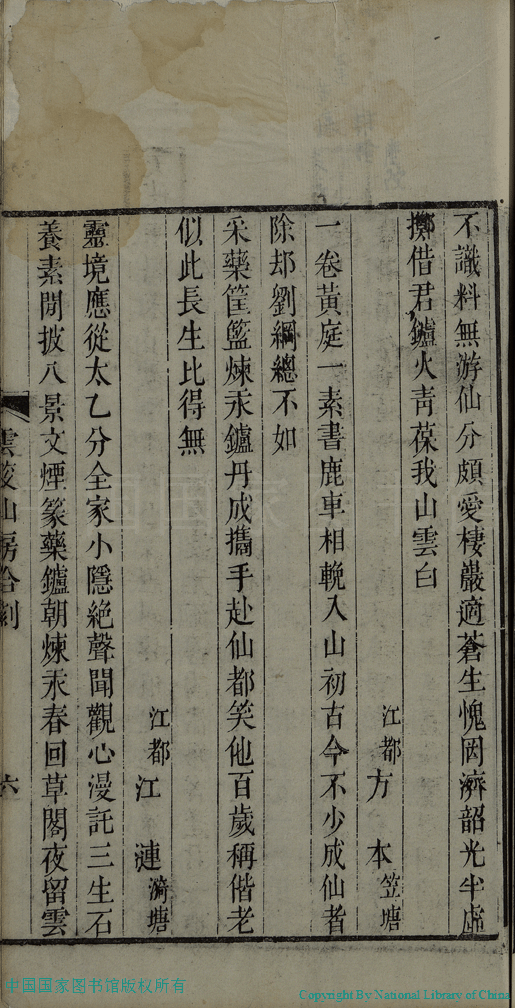 不識料無游仙分頗愛棲巖適蒼生愧因濟韶光半虛
擲借君鑪火靑葆我山雲白
江都方　本笠塘
一卷黃庭一素書鹿車相輓入山初古今不少成仙者
除却劉綱總不如
采藥筐籃煉汞鑪丹成攜手赴仙都笑他百歲稱偕老
似此長生比得無
江都江　漣漪塘
靈境應從太乙分全家小隱絶聲聞觀心漫託三生石
養素閒披八景文煙篆藥鑪朝煉汞春回草閣夜留雲
山房合刻
六
中国国家图书馆版权所有
Copyright By National Library of China